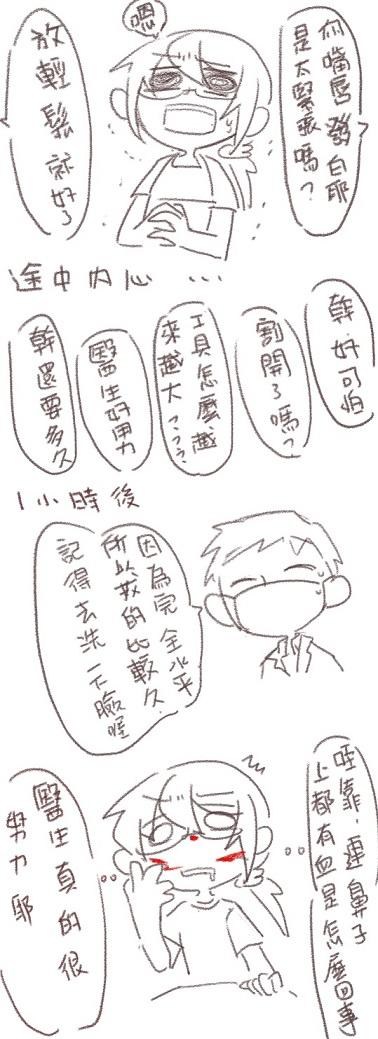 你嘴唇發白耶
是太緊張嗎？
嗯
放輕鬆就好了
途中內心...
幹，好可怕
割開了嗎？
工具怎麼越
來越大？？？？
醫生好用力
幹還要多久
1小時後
因為完全水平
所以拔的比較久
記得去洗一下臉喔
哇靠，連鼻子
上都有血是怎麼回事
醫生真的很
努力耶